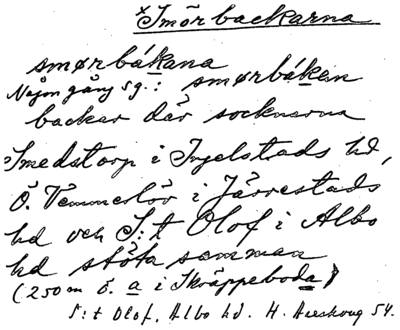 ×Smörbackarna
smørbákana
Någon gång sg.: smørbáken
backar där socknarna
Smedstorp i Ingelstads hd,
Ö. Vemmelöv i Järrestads
hd och S:t Olof i Albo
hd stöta samman
(250 m ö. a i Skräppeboda)
S:t Olof, Albo hd. H. Areskoug 54.